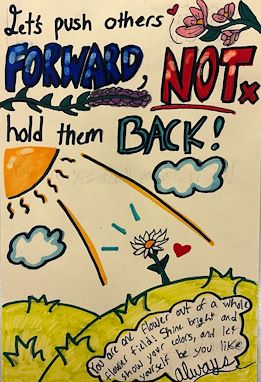 Let's push others
FORWARD,
NOT
hold them BACK!
You are one flower out of a whole
flower field. Shine bright and
show your colors, and let
yourself be you like
always